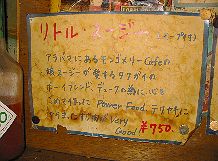 リトル・スージー（スープ付）
アラバマにあるモンゴメリーCafeの
娘スージーが愛するタクガイの
ホーイフレンド、デュークの為に、心を
こめて作ったPower Food. テリヤキに
very
Good ¥750.